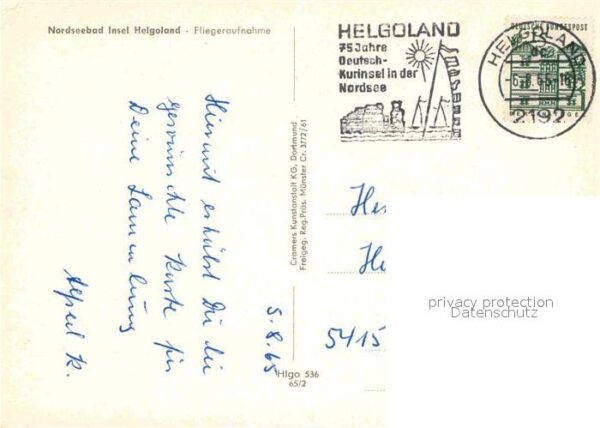 Nordseebad Insel Helgoland - Fliegeraufnahme
HELGOLAND
75 Jahre
Deutsch-
Kurinsel in der
Nordsee
DEUTSCHE BUNDESPOST
HELGOLAND
-6.8.65-18
2192
Hiermit erhälst Du die
gewünschte Karte für
Deine Sammlung
Alfred K.
5.8.65
Cramers Kunstanstalt KG, Dortmund
Freigeg. Reg.Präs. Münster Cr. 3772/61
Hlgo 536
65/2
5415
privacy protection
Datenschutz